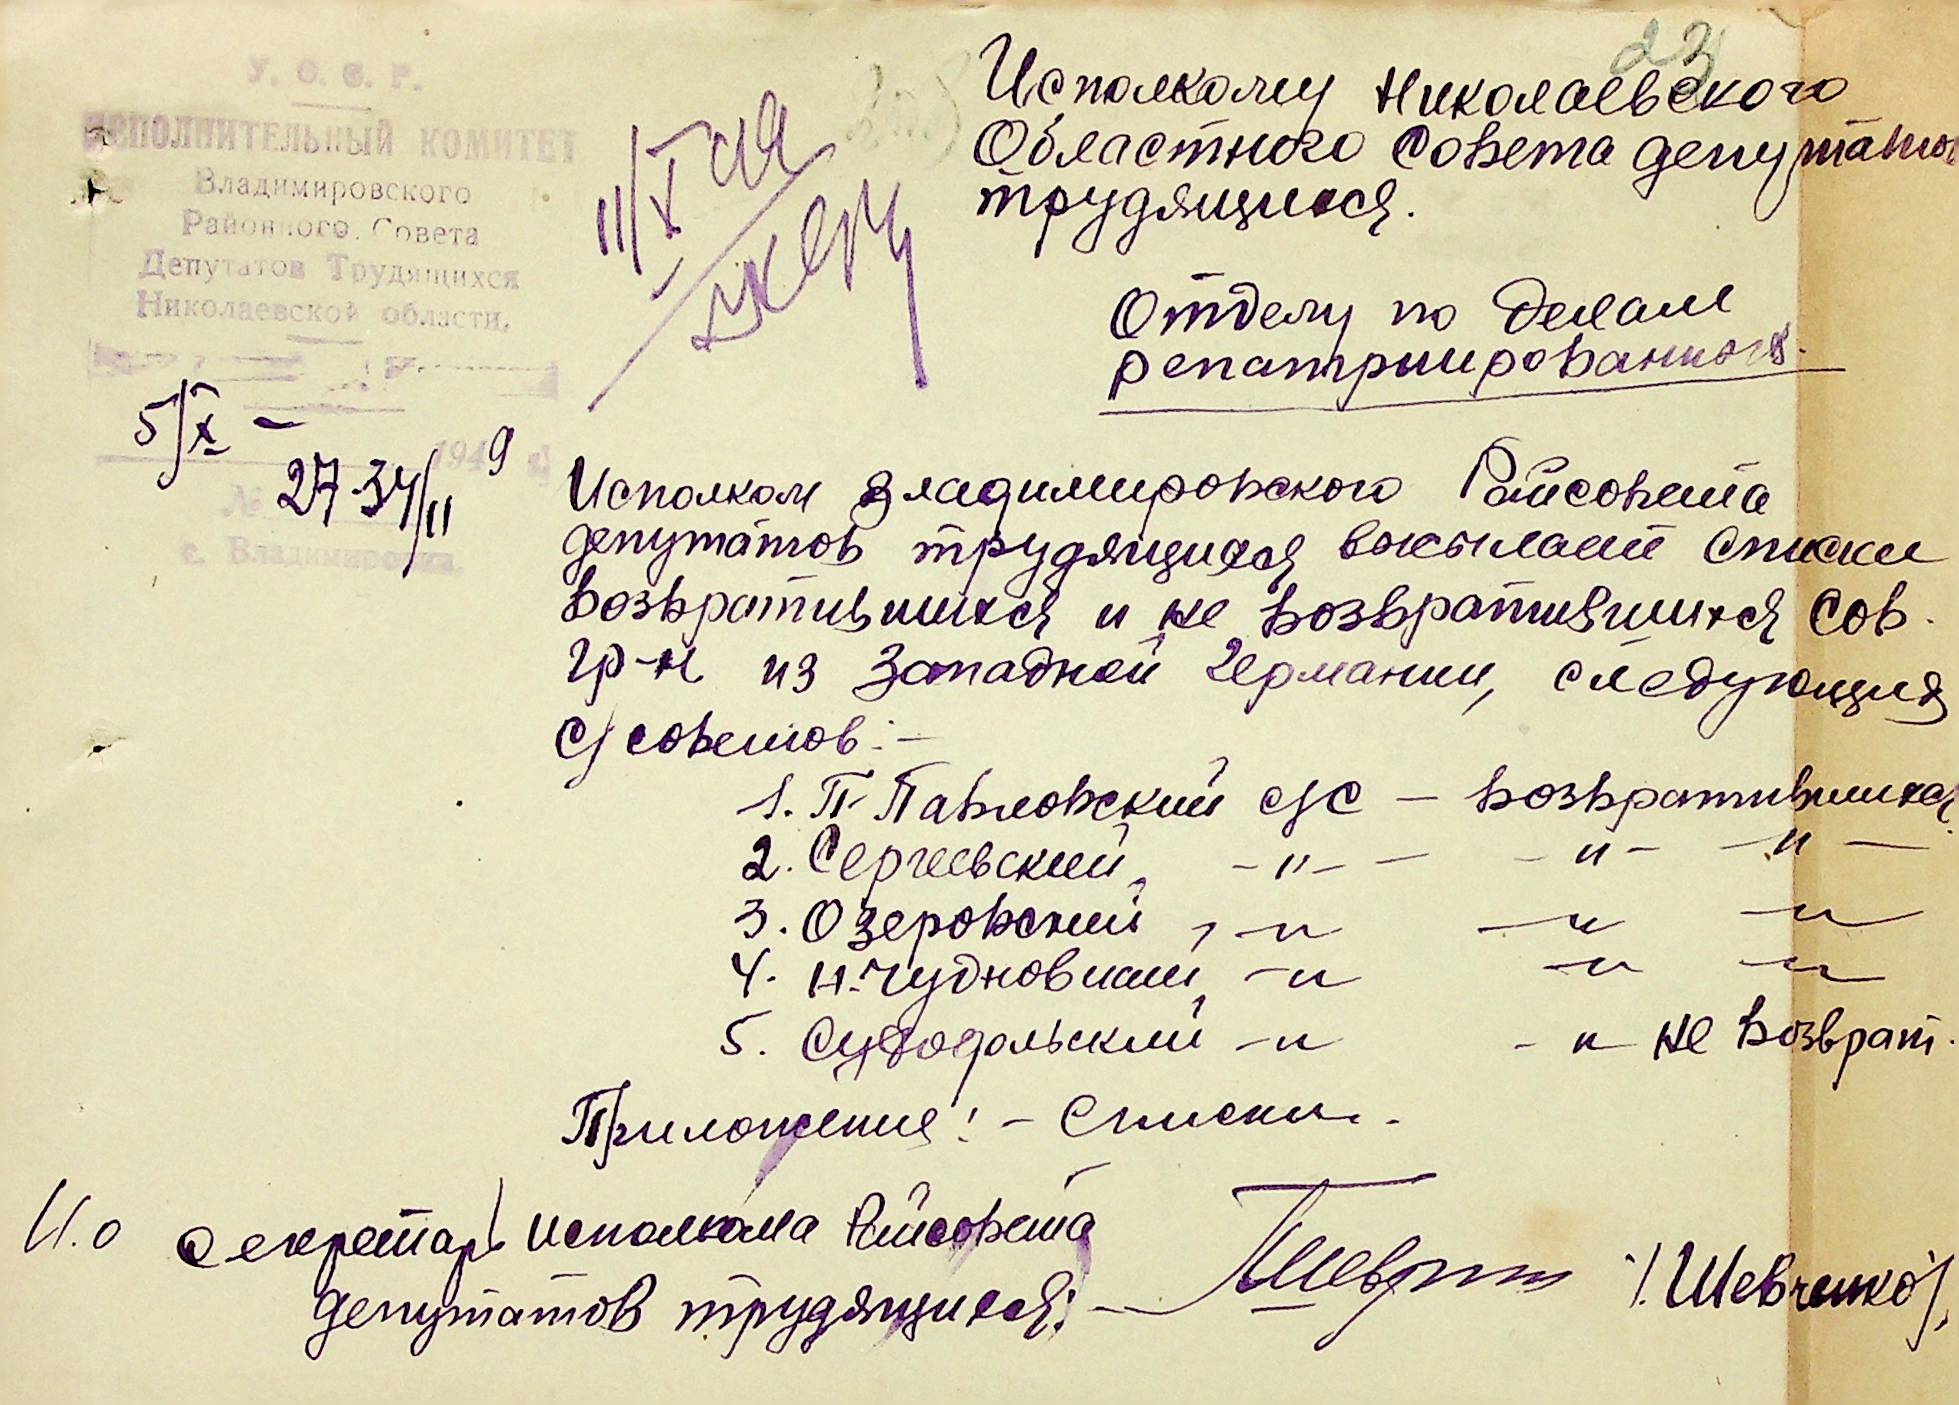 23
У. С. С. Р.
ИСПОЛНИТЕЛЬНЫЙ КОМИТЕТ
Владимировского
Районного Совета
Депутатов Трудящихся
Николаевской области,
5/X – 1949
№ 27-34/11
с. Владимировка
11/X
Исполкому Николаевского
Областного Совета депутатов
трудящихся.
Отделу по делам
репатриированных.
Исполком Владимировского Райсовета
депутатов трудящихся высылает списки
возвратившихся и не возвратившихся Сов.
гр-н из Западной Германии, следующих
с/советов:–
1. П-Павловский с/с – возвратившихся
2. Сергеевский, –"– –"– –"–
3. Озеровский, –"– –"– –"–
4. Н-Чудновский, –"– –"– –"–
5. Суходольский –"– –"– не возврат.
Приложение: – Списки.
И.о секретарь исполкома Райсовета
депутатов трудящихся: – /Шевченко/